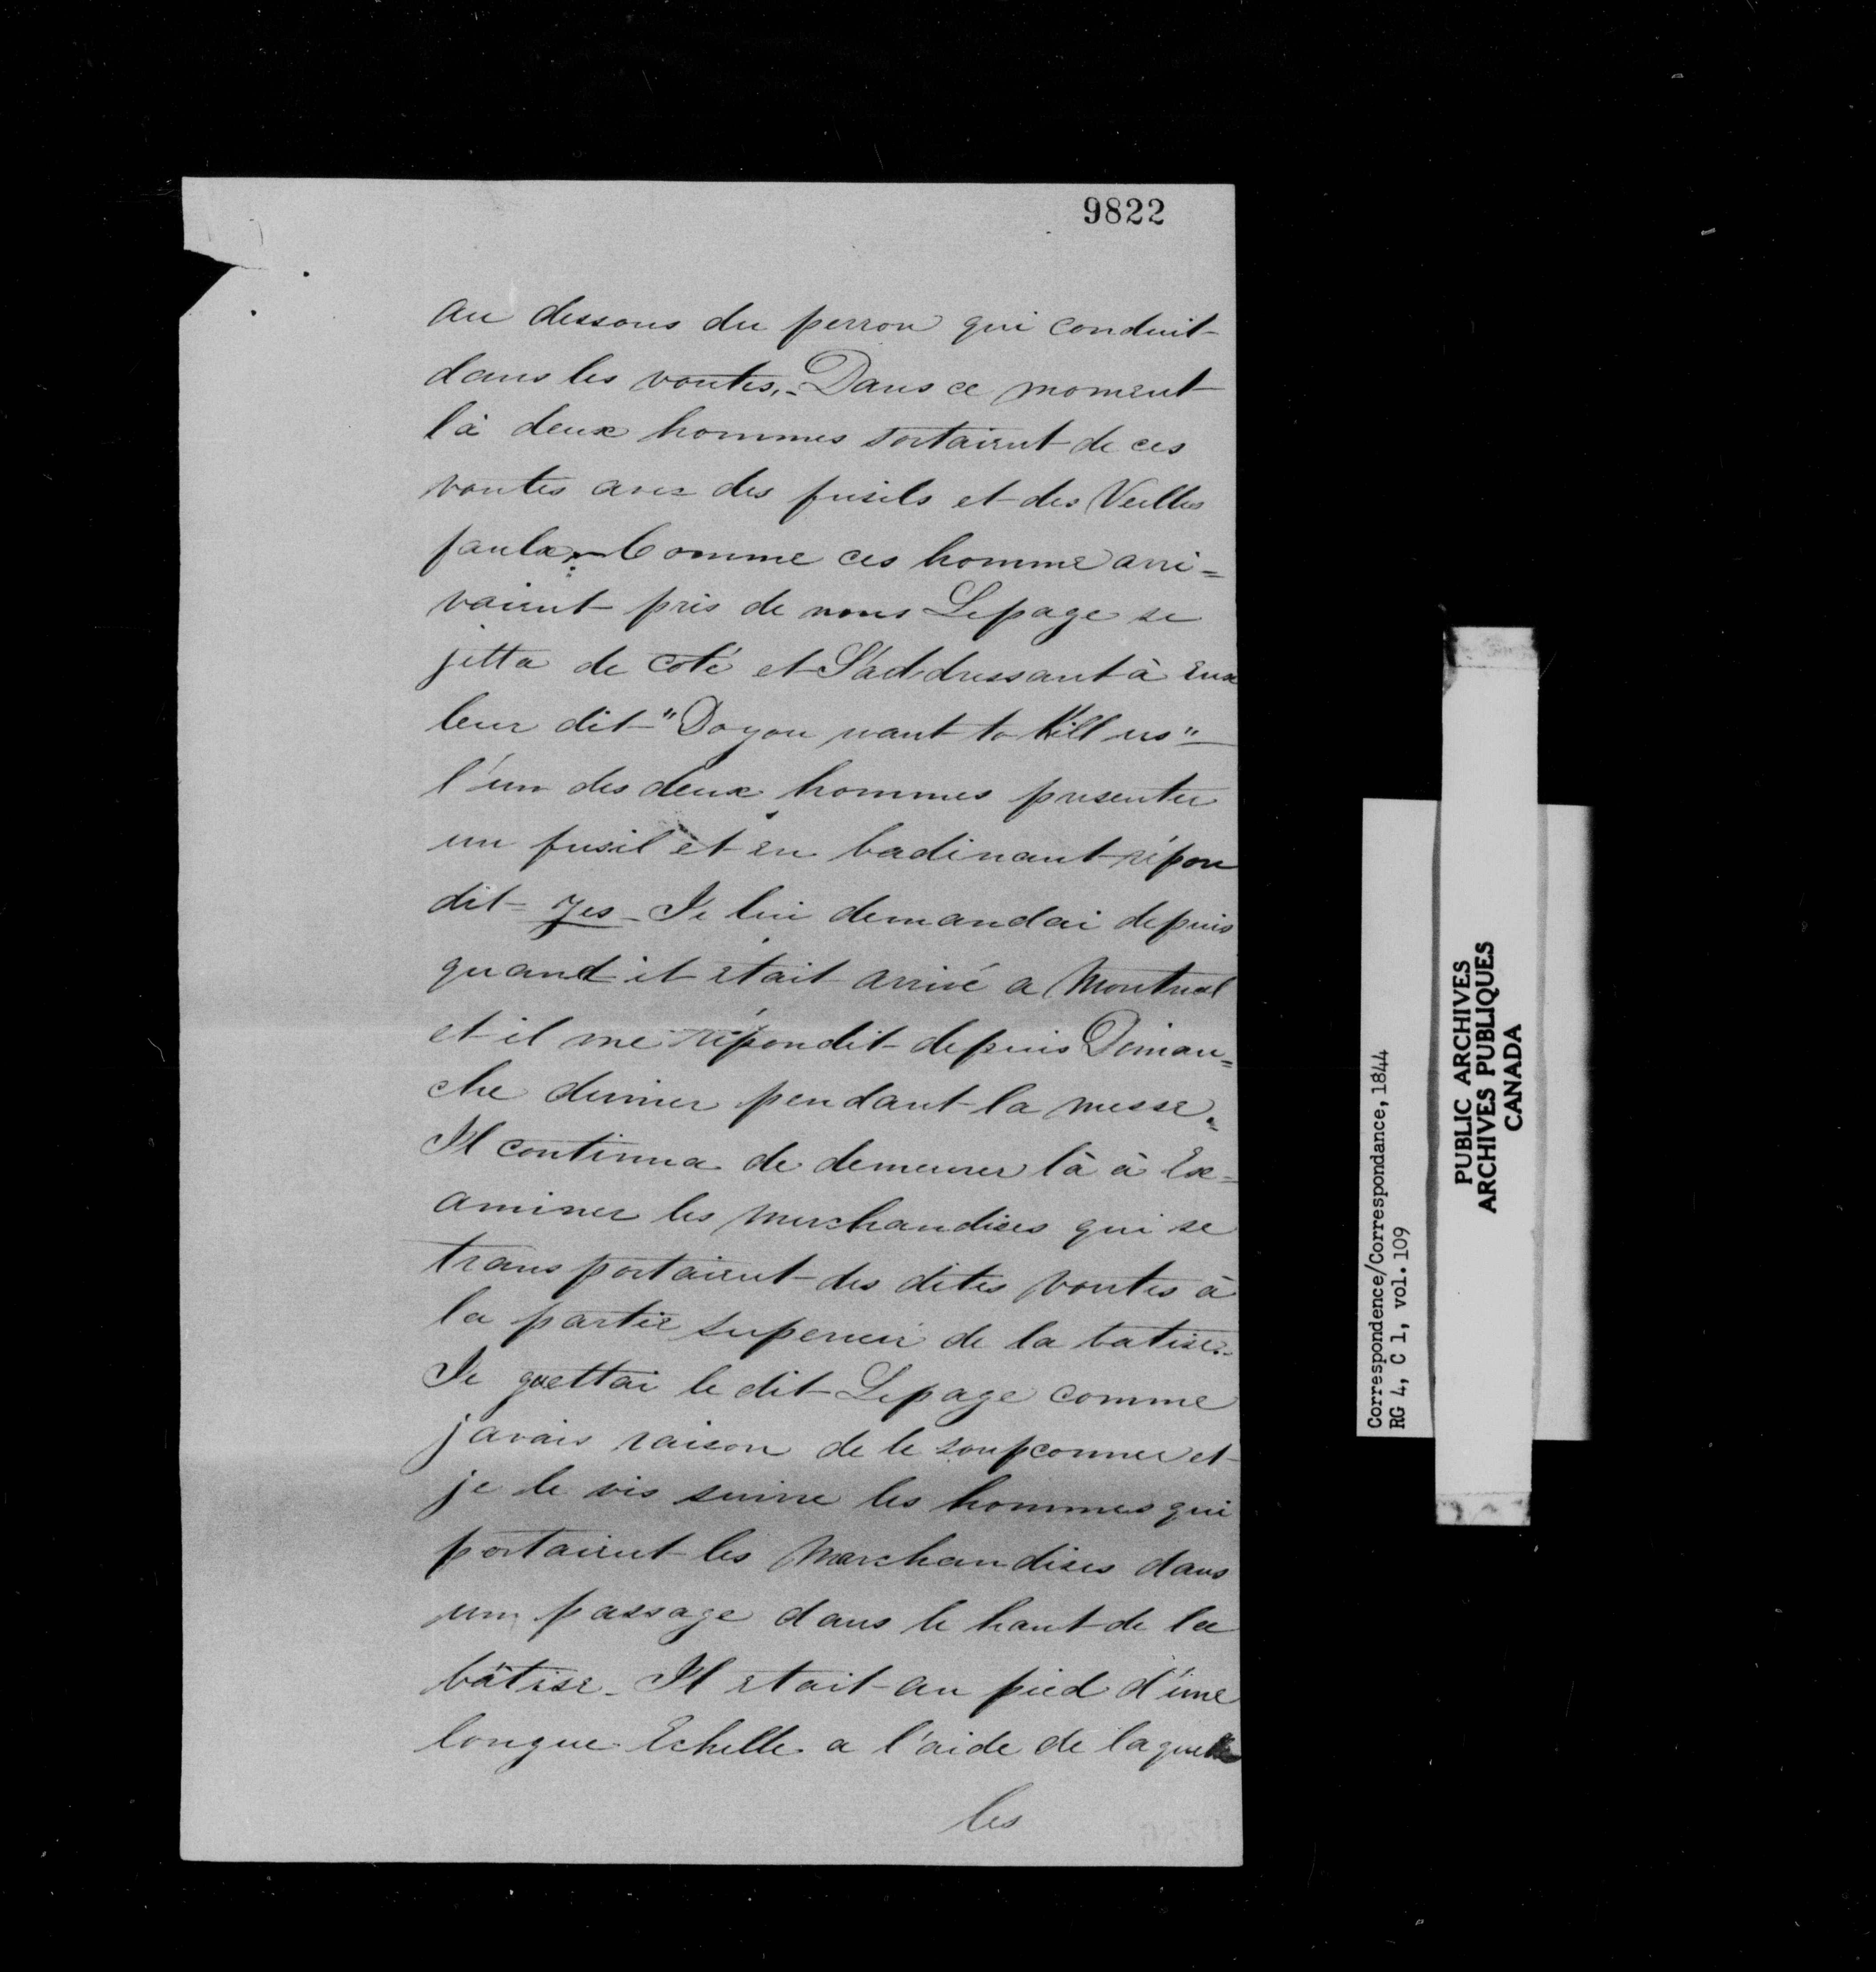 9822
au dessous du perron qui conduit
dans les voutes.- Dans ce moment
là deux hommes sortaient de ces
voutes avec des fusils et des Veilles
faulx.- Comme ces homme arri=
vaient près de nous Lepage se
jetta de coté et S'addressant à eux
leur dit "Do you want to Kill us"
l'un des deux hommes presenter
un fusil et en badinant répon
dit = Yes - Je lui demandai depuis
quand il etait arrivé a Montreal
et il me répondit depuis Diman=
che dernier pendant la messe.
Il continua de demeurer là à Ex=
aminer les merchandises qui se
transportaient des dites voutes à
la partie superieur de la batise.
Je guettai le dit Lepage comme
j'avais raison de le soupconner et
je le vis suivre les hommes qui
portaient les Marchandises dans
un passage dans le haut de la
bâtise - Il etait au pied d'une
longue Echelle a l'aide de laquelle
les
Correspondence/Correspondance, 1844
RG 4, C 1, vol. 109
PUBLIC ARCHIVES
ARCHIVES PUBLIQUES
CANADA